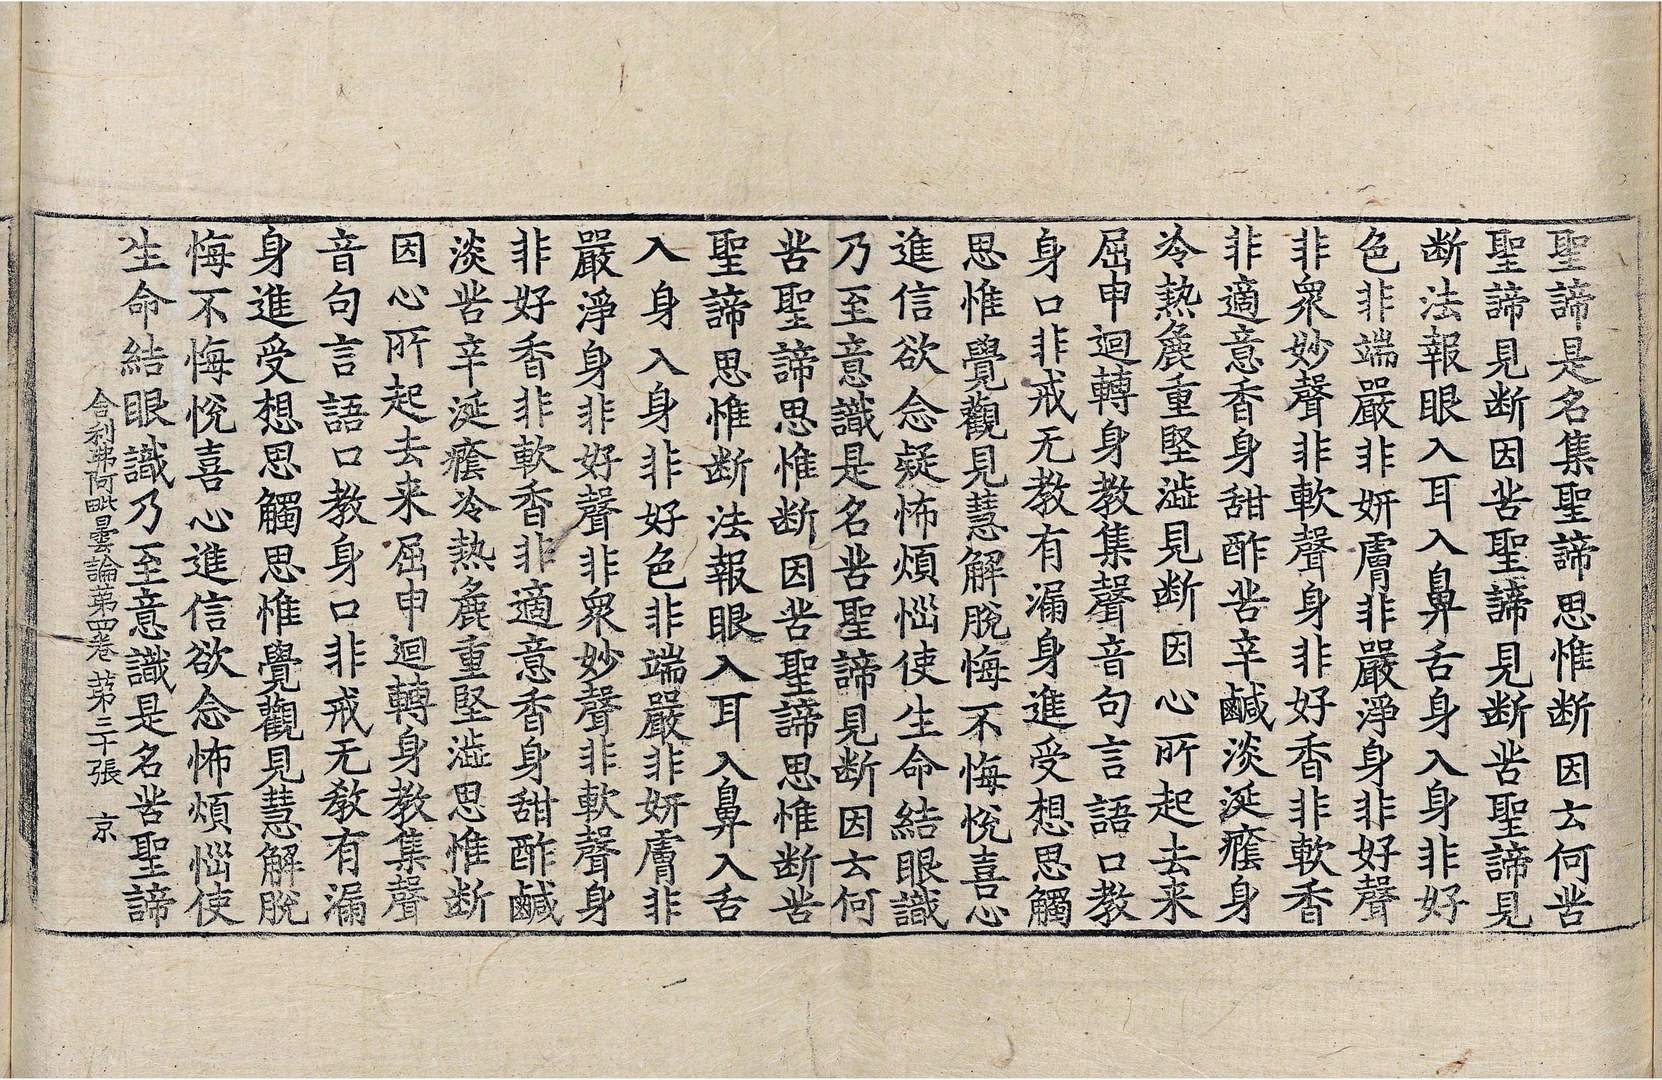 聖諦是名集聖諦思惟断因云何苦
聖諦見断因苦聖諦見断苦聖諦見
断法報眼入耳入鼻舌身入身非好
色非端嚴非妍膚非嚴淨身非好聲
非衆妙聲非軟聲身非好香非軟香
非適意香身甜酢苦辛鹹淡涎癊身
冷熱麁重堅澁見断因心所起去来
屈申迴轉身教集聲音句言語口教
身口非戒无教有漏身進受想思觸
思惟覺觀見慧解脫悔不悔悅喜心
進信欲念疑怖煩惱使生命結眼識
乃至意識是名苦聖諦見断因云何
苦聖諦思惟断因苦聖諦思惟断苦
聖諦思惟断法報眼入耳入鼻入舌
入身入身非好色非端嚴非妍膚非
嚴淨身非好聲非衆妙聲非軟聲身
非好香非軟香非適意香身甜酢鹹
淡苦辛涎癊冷熱麁重堅澁思惟断
因心所起去来屈申迴轉身教集聲
音句言語口教身口非戒无教有漏
身進受想思觸思惟覺觀見慧解脫
悔不悔悅喜心進信欲念怖煩惱使
生命結眼識乃至意識是名苦聖諦
舍利弗阿毗曇論第四卷 第三十張 京